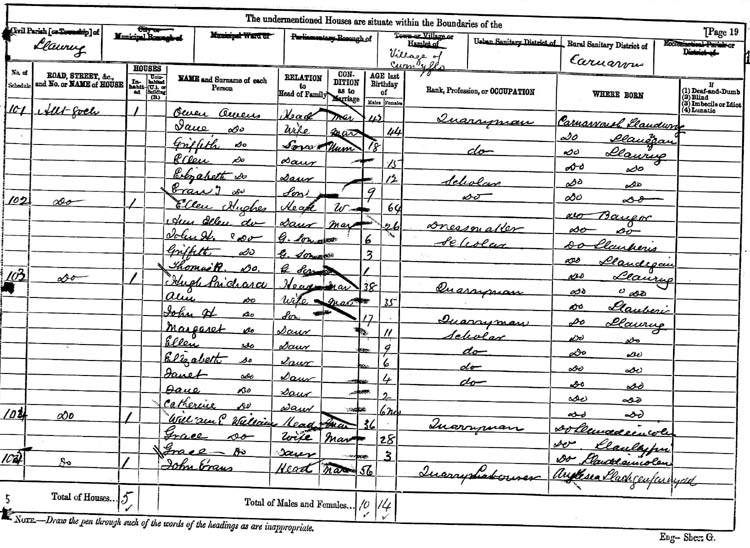 The undermentioned Houses are situate within the Boundaries of the
[Page 19
Civil Parish [or Township] of City or Municipal Borough of Municipal Ward of Parliamentary Borough of Town or Village or Hamlet of Urban Sanitary District of Rural Sanitary District of Ecclesiastical Parish or District of
Llanrug Village of Carnarvon
No. of Schedule ROAD, STREET, &c., and No. or NAME of HOUSE HOUSES In-habited Uninhabited (U.), or Building (B.) NAME and Surname of each Person RELATION to Head of Family CONDITION as to Marriage AGE last Birthday of Males Females Rank, Profession, or OCCUPATION WHERE BORN If (1) Deaf-and-Dumb (2) Blind (3) Imbecile or Idiot (4) Lunatic
101 Allt Goch 1 Owen Owens Head Mar 42 Quarryman
Jane Do Wife Mar 44 Do
Griffith Do Son Unm 18 do Do Llanrug
Ellen Do Daur 15 Do Do
Elizabeth Do Daur 12 Scholar Do Do
Do Son 9 Do Do Do
102 Do 1 Ellen Hughes Head W 64 Do Bangor
Ann Ellen do Daur Mar 26 Dressmaker Do Do
John H. Do G. Son 6 Scholar Do Llanberis
Griffith G. Son 3 Do
Thomas R. Do. G Son 1 Do Llanrug
103 Do 1 Hugh Prichard Head Mar 38 Quarryman Do Do
Ann Do Wife Mar 35 Do Llanberis
John H Do Son 17 Quarryman Do Llanrug
Margaret Do Daur 11 Scholar Do Do
Ellen Do Daur 9 do Do Do
Elizabeth Do Daur 6 do Do Do
Janet Do Daur 4 do Do Do
Jane Do Daur 2 Do Do
Catherine Do Daur 6 Mos Do Do
104 Do 1 William E Williams Head Mar 36 Quarryman Do
Grace Do Wife Mar 28 Do
Grace Do Daur 3 Do
Do 1 John Evans Head Mar 56 Quarry Labourer Anglesea
5 Total of Houses... 5 Total of Males and Females... 10 14
NOTE.—Draw the pen through such of the words of the headings as are inappropriate.
Eng— Sheet G.